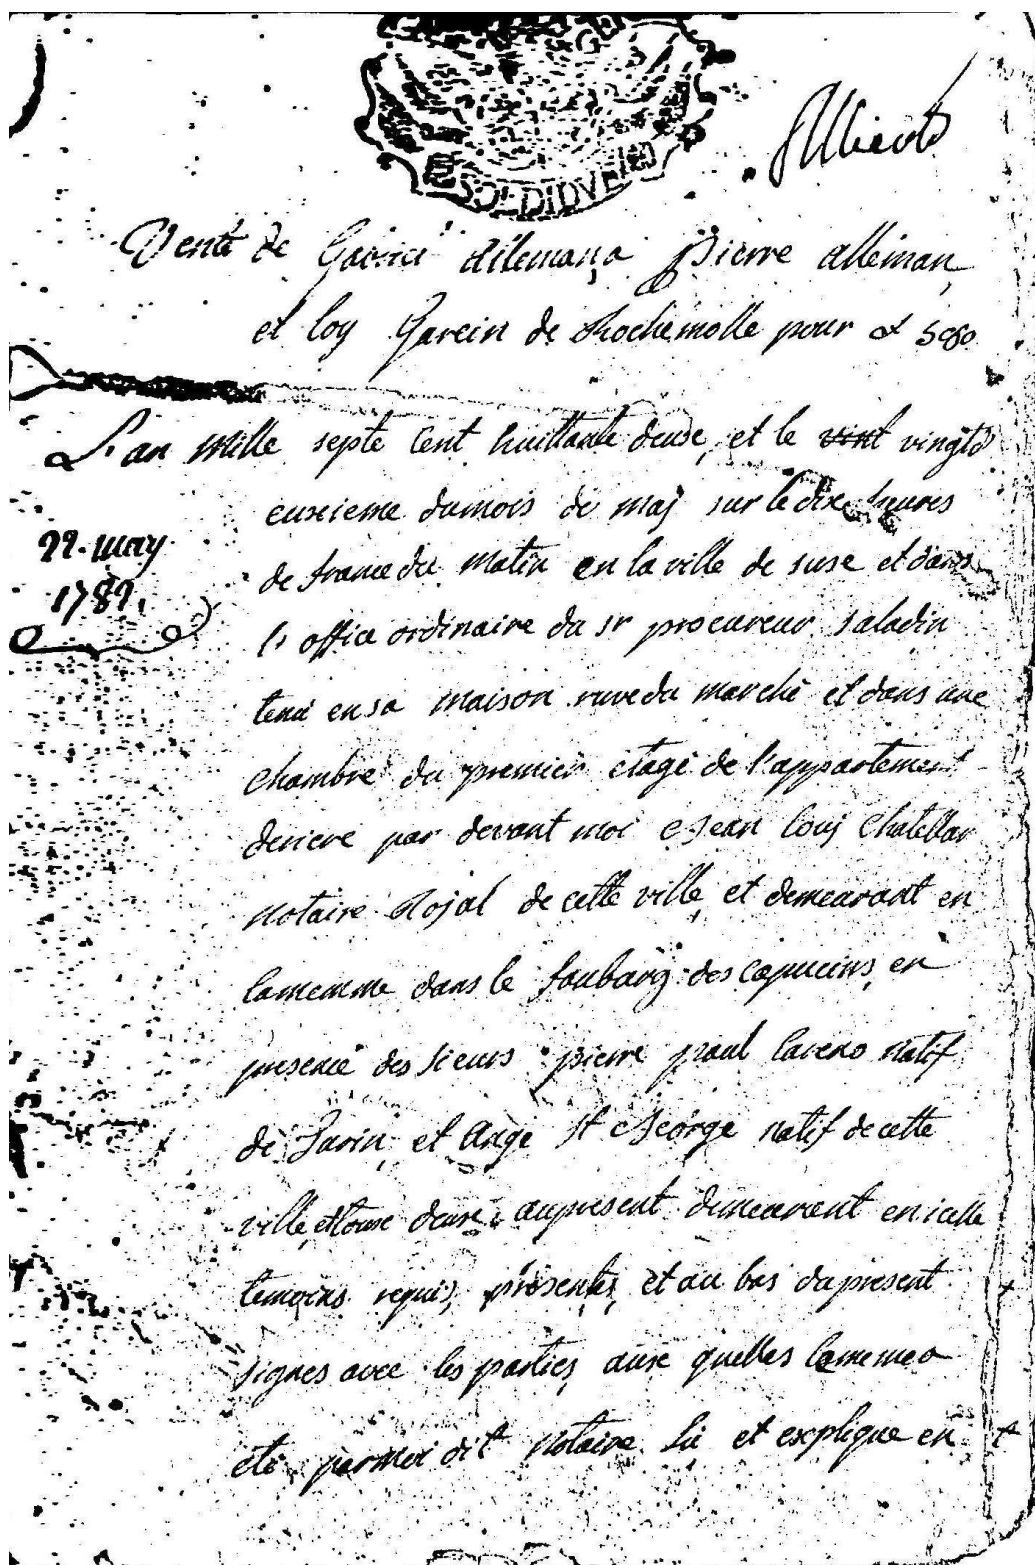 SOLDIDVE
Vente de allemana pierre alleman
et loy Garcin de Rochemolle pour £ 5080
L'an Mille septe Cent huittante deuse, et le vint vingtd
euxieme dumois de maj sur le dix heures
22. may
1782.
de france du matin en la ville de suse et dans
l'office ordinaire du sr procureur saladin
tenu en sa maison ruve du marché et dans une
Chambre du premier etage de l'appartement
deriere par devant moi Jean louj Chatellar
Notaire Rojal de cette ville, et demeurant en
lamemme dans le foubourg des capucins, en
presence des sieurs pierre paul lavero natif
de Turin, et Ange St George natif de cette
ville, et touse deuse, aupresent demeurant en icelle
temoins requis, presentes, et au bas dupresent
signes avec les parties, ause quelles lamemea
eté parmoi dit Notaire lu et explique en